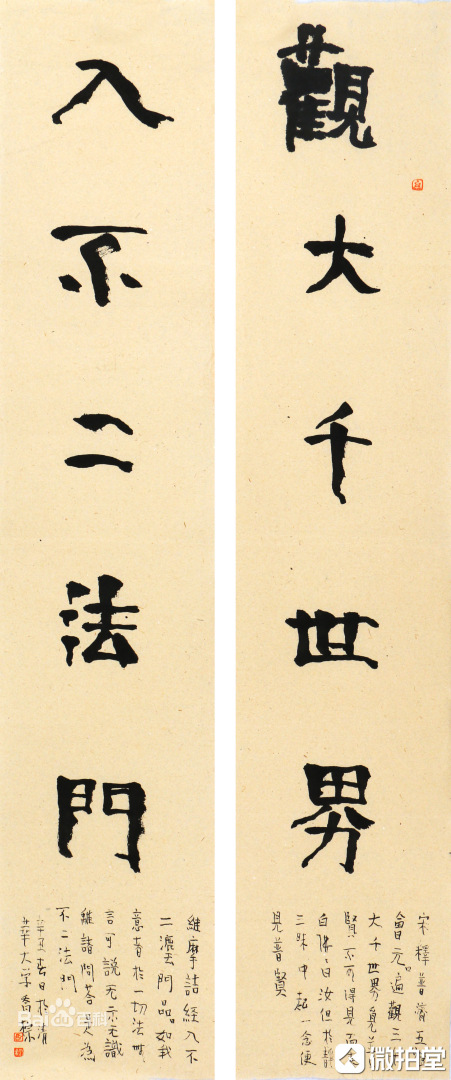 觀大千世界
宋釋普濟五
會元。遍觀三
大千世界覓
賢不可得見
白佛佛曰汝但於靜
三昧中起一念便
見普賢
入不二法門
維摩詰經入不
二法門品。如我
意者於一切法無
言可說无示无識
離諸問答是為
不二法門
辛丑春日於清
華大学
Bai百科
微拍堂